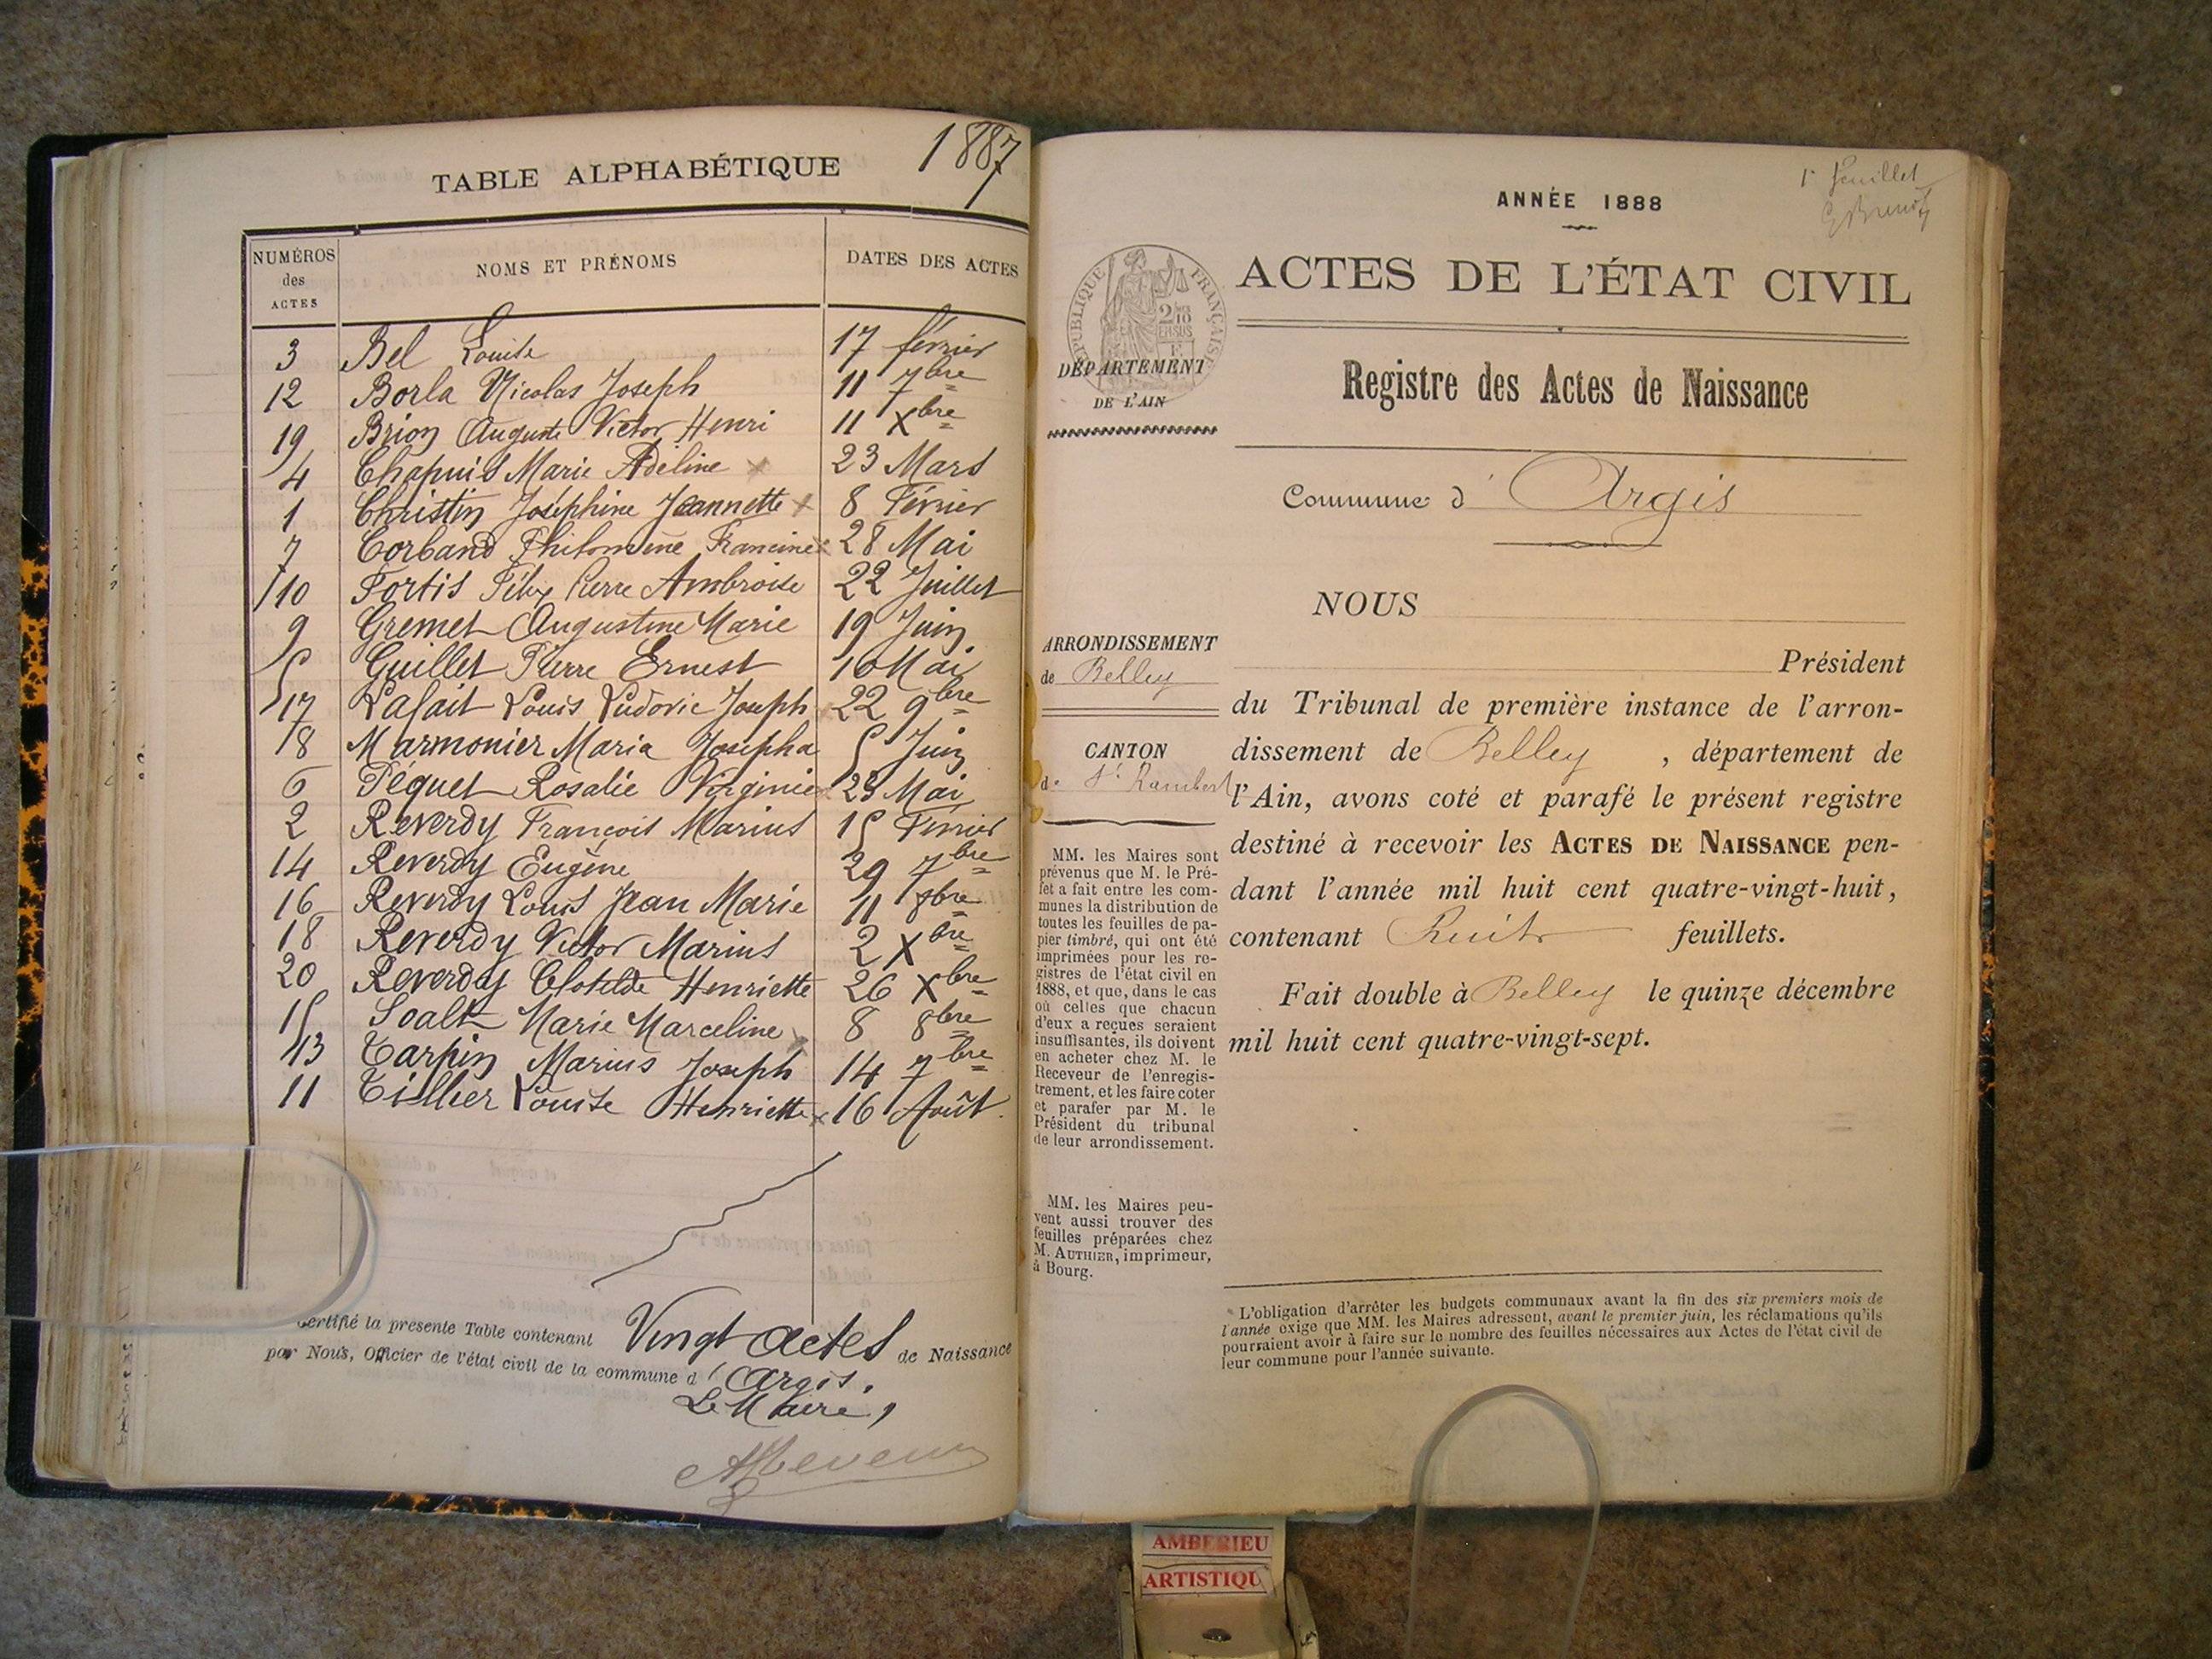 1887
TABLE ALPHABÉTIQUE
NUMÉROS des ACTES
NOMS ET PRÉNOMS
DATES DES ACTES
3 Bel Louise 17 février
12 Borla Nicolas Joseph 11 7bre
19 Brion Auguste Victor Henri 11 Xbre
4 Chapuis Marie Adeline 23 Mars
1 Christin Joséphine Jeannette 8 Février
7 Corband Philomène Francine 28 Mai
10 Fortis Félix Pierre Ambroise 22 Juillet
9 Gremet Augustine Marie 19 Juin
5 Guillet Pierre Ernest 10 Mai
17 Lafait Louis Ludovic Joseph 22 9bre
8 Marmonier Maria Josepha 5 Juin
6 Péquet Rosalie Virginie 23 Mai
2 Reverdy François Marius 15 Février
14 Reverdy Eugène 29 7bre
16 Reverdy Louis Jean Marie 11 8bre
18 Reverdy Victor Marius 2 Xbre
20 Reverdy Clotilde Henriette 26 Xbre
15 Soalt Marie Marceline 8 8bre
13 Tarpin Marius Joseph 14 7bre
11 Tillier Louise Henriette 16 Août
Certifié la presente Table contenant Vingt actes de Naissance
par Nous, Officier de l'état civil de la commune d'Argis.
Le Maire,
1r feuillet
ANNÉE 1888
ACTES DE L'ÉTAT CIVIL
RÉPUBLIQUE FRANÇAISE
2/10 EN SUS
DÉPARTEMENT
DE L'AIN
Registre des Actes de Naissance
Commune d'Argis
ARRONDISSEMENT
de Belley
CANTON
de St Rambert
MM. les Maires sont
prévenus que M. le Pré-
fet a fait entre les com-
munes la distribution de
toutes les feuilles de pa-
pier timbré, qui ont été
imprimées pour les re-
gistres de l'état civil en
1888, et que, dans le cas
où celles que chacun
d'eux a reçues seraient
insuffisantes, ils doivent
en acheter chez M. le
Receveur de l'enregis-
trement, et les faire coter
et parafer par M. le
Président du tribunal
de leur arrondissement.
MM. les Maires peu-
vent aussi trouver des
feuilles préparées chez
M. AUTHIER, imprimeur,
à Bourg.
NOUS
Président
du Tribunal de première instance de l'arron-
dissement de Belley, département de
l'Ain, avons coté et parafé le présent registre
destiné à recevoir les ACTES DE NAISSANCE pen-
dant l'année mil huit cent quatre-vingt-huit,
contenant huit feuillets.
Fait double à Belley le quinze décembre
mil huit cent quatre-vingt-sept.
L'obligation d'arrêter les budgets communaux avant la fin des six premiers mois de
l'année exige que MM. les Maires adressent, avant le premier juin, les réclamations qu'ils
pourraient avoir à faire sur le nombre des feuilles nécessaires aux Actes de l'état civil de
leur commune pour l'année suivante.
AMBERIEU
ARTISTIQU